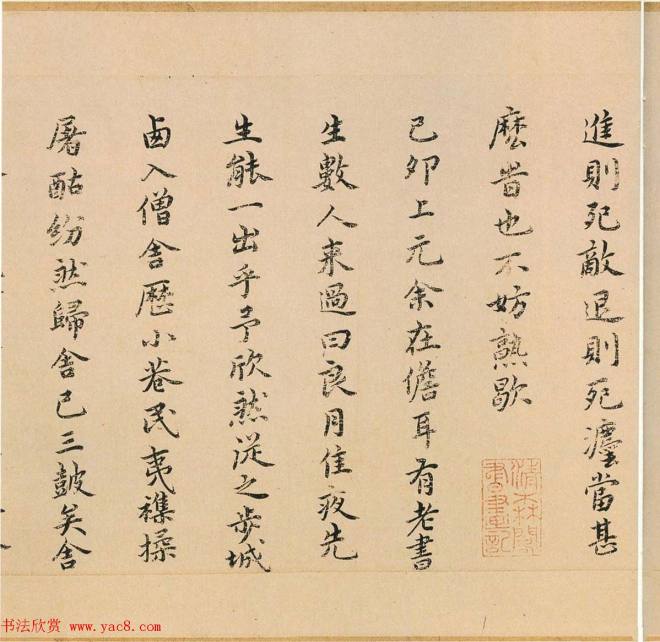 進則死敵退則死灋當甚
麽旹也不妨熟歇
己卯上元余在儋耳有老書
生數人來過曰良月佳夜先
生能一出乎予欣然從之步城
卥入僧舍歷小巷民夷襍揉
屠酤紛然歸舍已三鼓矣舍
清森閣
書畫記
书法欣赏 www.yac8.com